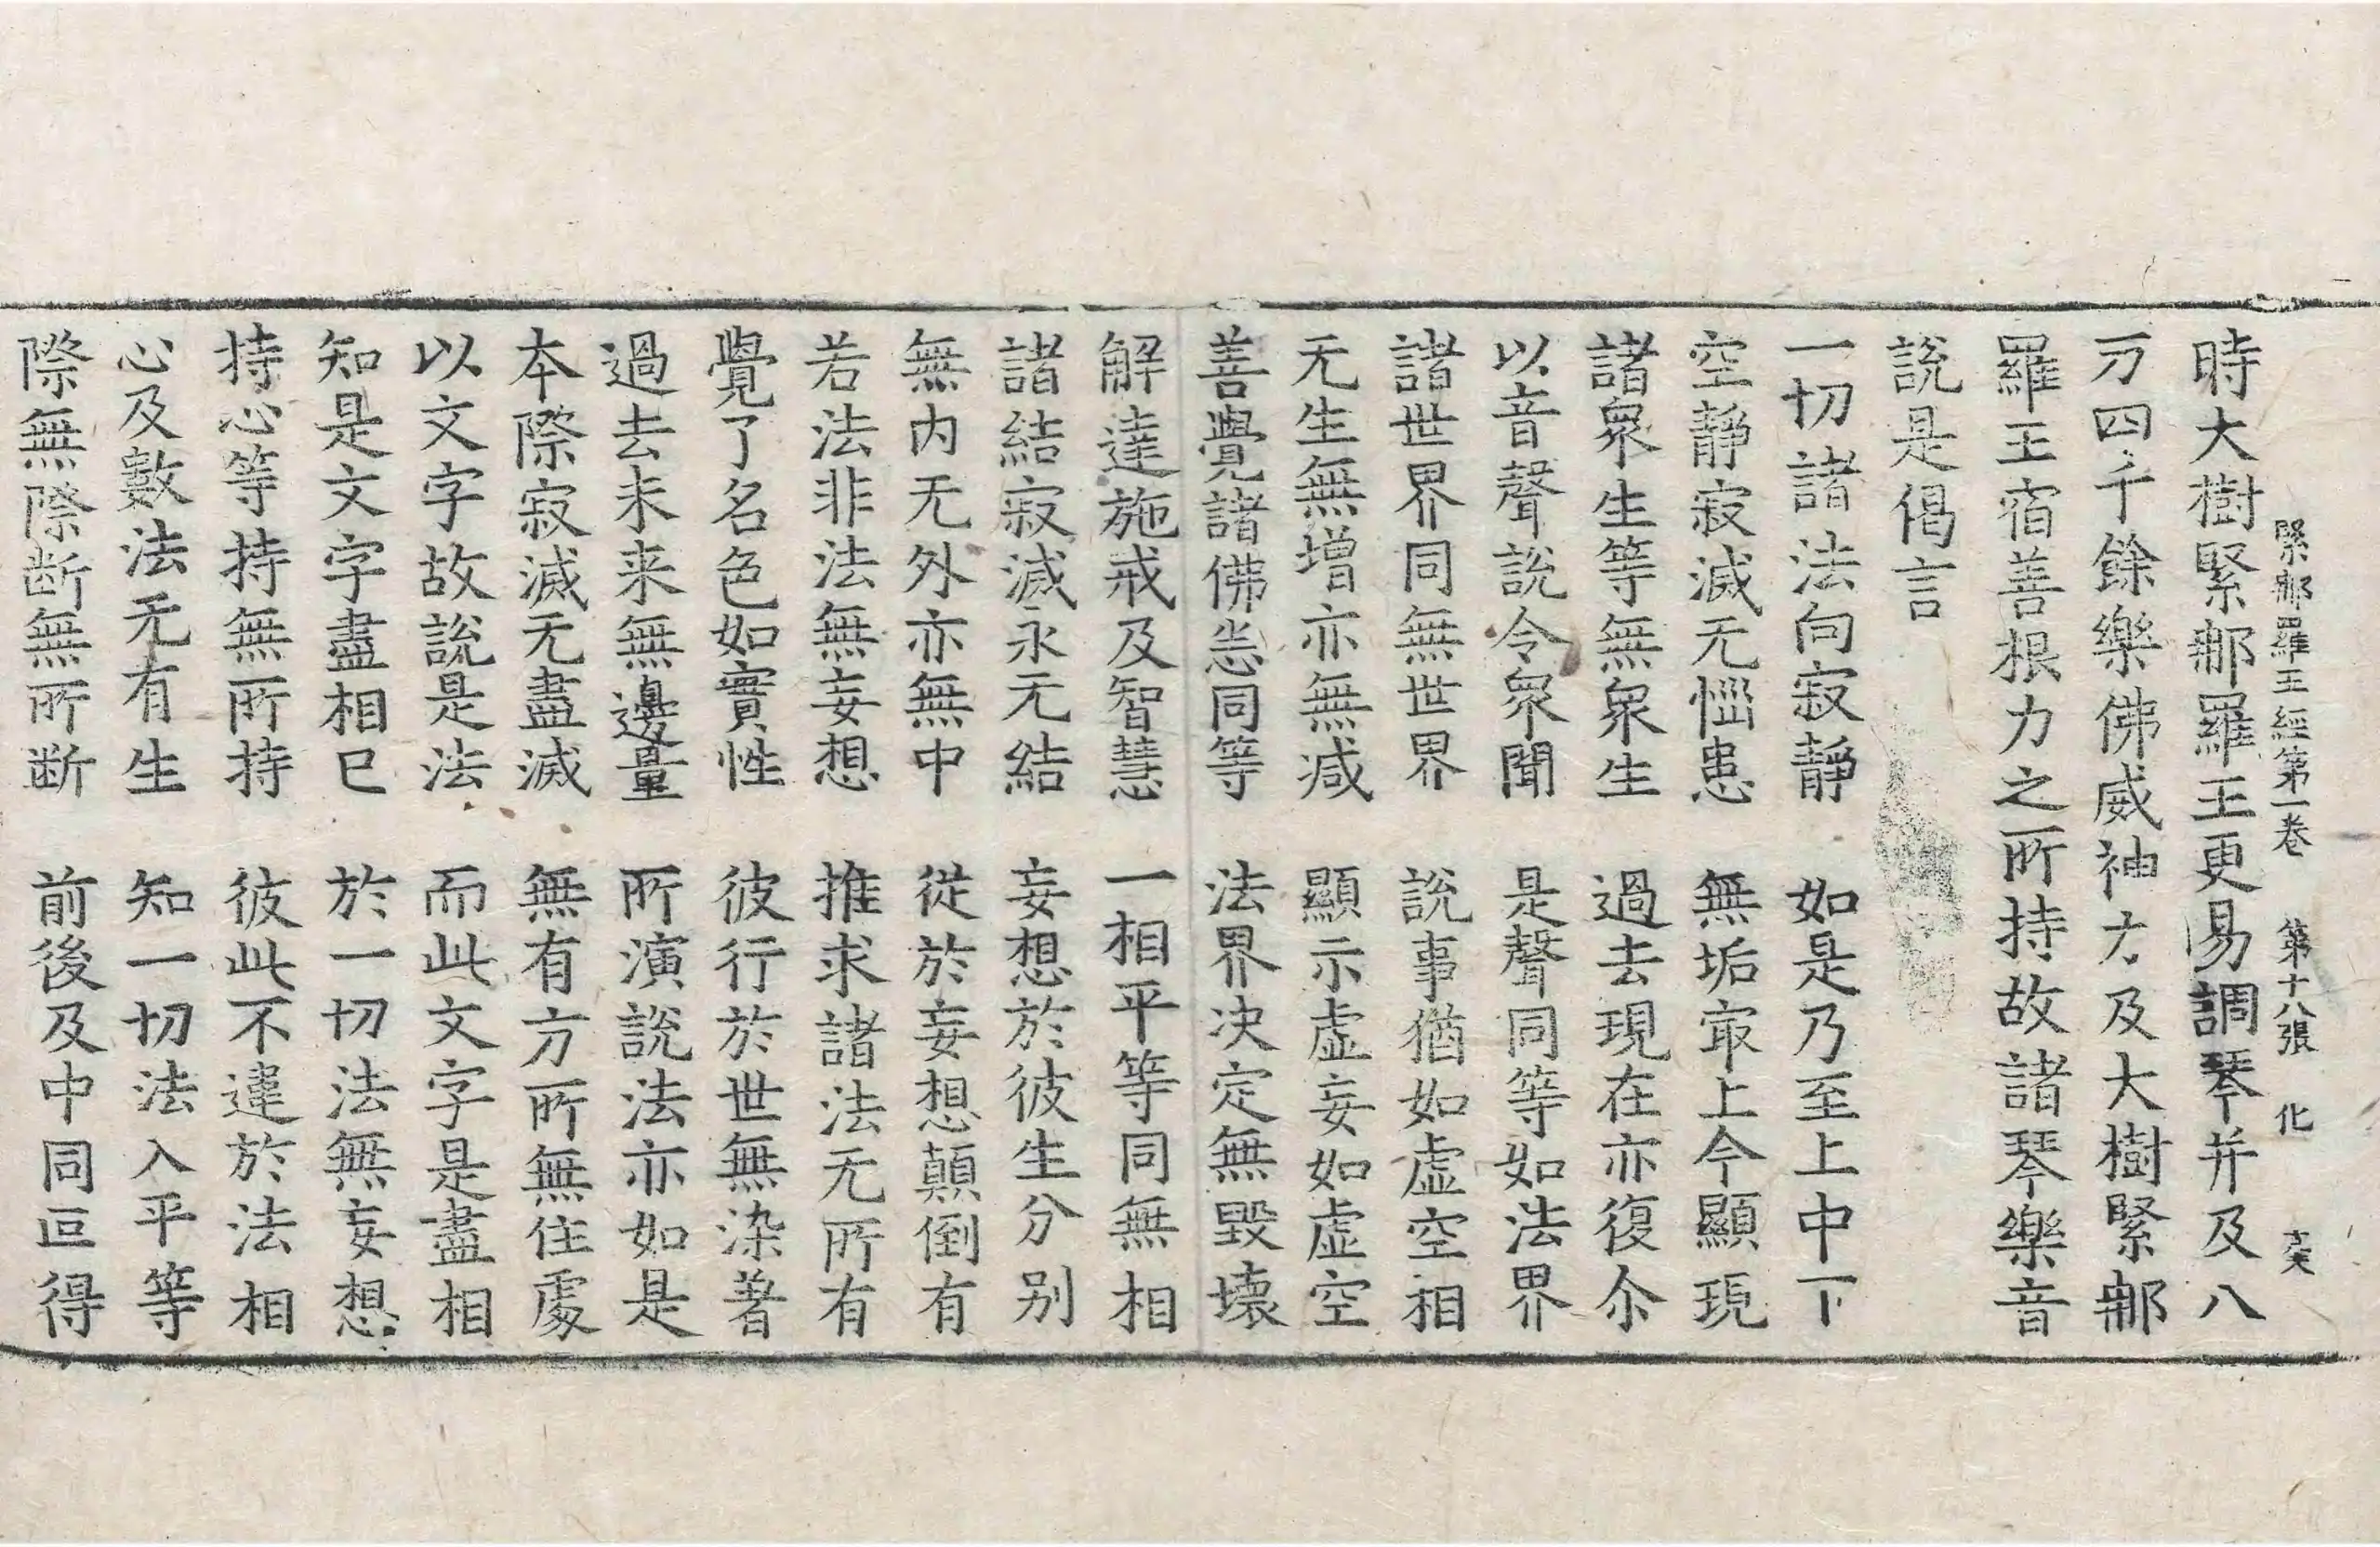 緊那羅王經第一卷 第十八張 化
時大樹緊那羅王更易調琴并及八
万四千餘樂佛威神力及大樹緊那
羅王宿善根力之所持故諸琴樂音
說是偈言
一切諸法向寂靜 如是乃至上中下
空靜寂滅无惱患 無垢冣上今顯現
諸眾生等無眾生 過去現在亦復尒
以音聲說令眾聞 是聲同等如法界
諸世界同無世界 說事猶如虛空相
无生無增亦無減 顯示虛妄如虛空
善覺諸佛悉同等 法界決定無毀壞
解達施戒及智慧 一相平等同無相
諸結寂滅永无結 妄想於彼生分別
無內无外亦無中 從於妄想顛倒有
若法非法無妄想 推求諸法无所有
覺了名色如實性 彼行於世無染著
過去未来無邊量 所演說法亦如是
本際寂滅无盡滅 無有方所無住處
以文字故說是法 而此文字是盡相
知是文字盡相已 於一切法無妄想
持心等持無所持 彼此不違於法相
心及數法无有生 知一切法入平等
際無際断無所断 前後及中同叵得